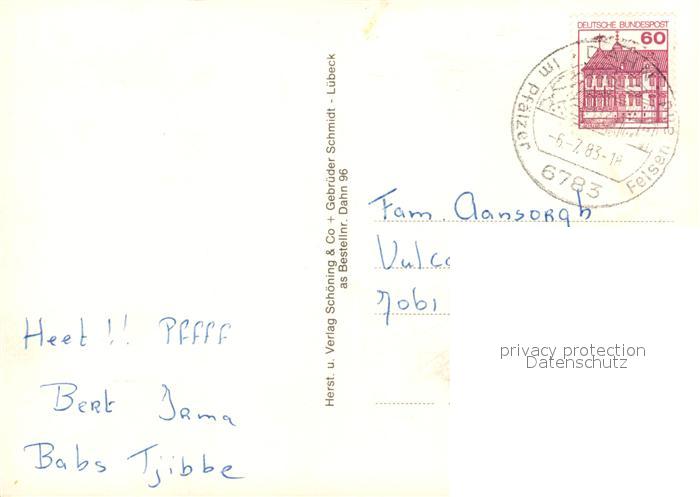 Heet!! Pffff
Bert Irma
Babs Tjibbe
Herst. u. Verlag Schöning & Co + Gebrüder Schmidt - Lübeck
as Bestellnr. Dahn 96
DEUTSCHE BUNDESPOST
60
DAHN
im Pfälzer
Felsenland
-6.-7.83-18
6783
Fam. Aansorgh
Vulc
privacy protection
Datenschutz